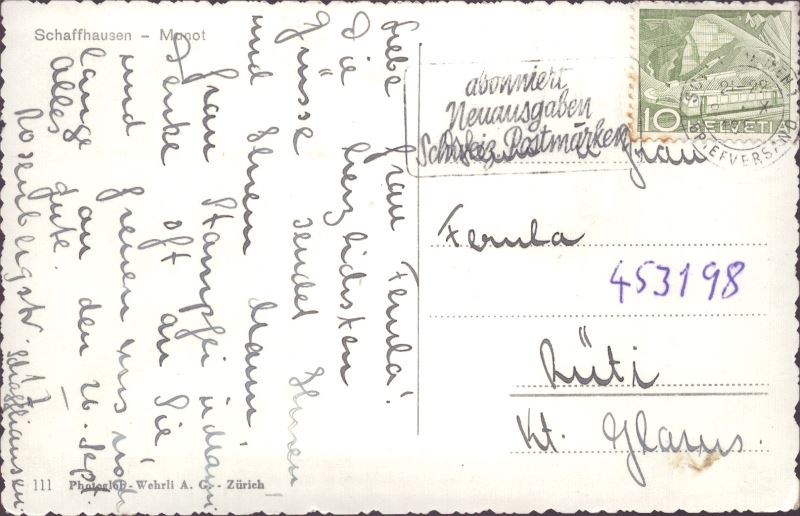 Schaffhausen – Munot
Liebe Frau Ferula!
Die herzlichsten
Grüsse sendet Ihnen
und Ihrem Mann
Frau Stampfli u.
denke oft an Sie
und freuen uns noch
lange an den 26. Sept.
alles gute.
Rosenbergstr. 17
Schaffhausen
111 Photoglob-Wehrli A. G. - Zürich
abonniert
Neuausgaben
Schweiz. Postmarken
10 HELVETIA
BRIEFVERSAND
u. Frau
Ferula
453198
Rüti
Kt. Glarus.